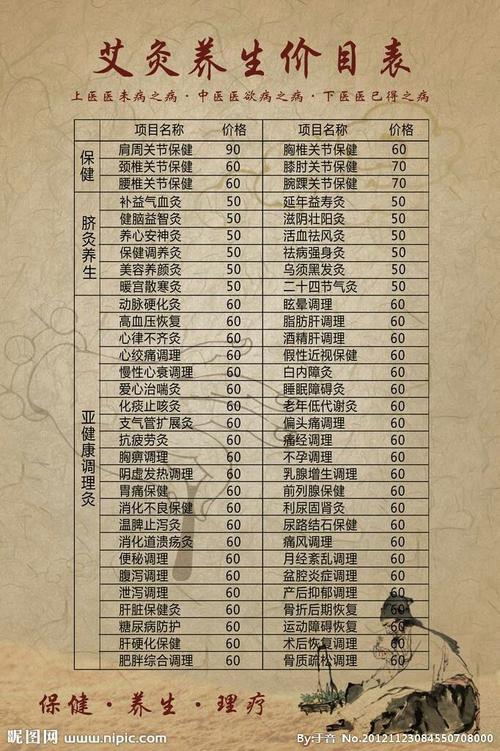 艾灸养生价目表
上医医未病之病·中医医欲病之病·下医医已得之病
项目名称 价格 项目名称 价格
保健
肩周关节保健 90 胸椎关节保健 60
颈椎关节保健 60 膝肘关节保健 70
腰椎关节保健 60 腕踝关节保健 70
脐灸养生
补益气血灸 50 延年益寿灸 50
健脑益智灸 50 滋阴壮阳灸 50
养心安神灸 50 活血祛风灸 50
保健调养灸 50 祛病强身灸 50
美容养颜灸 50 乌须黑发灸 50
暖宫散寒灸 50 二十四节气灸 50
亚健康调理灸
动脉硬化灸 60 眩晕调理 60
高血压恢复 60 脂肪肝调理 60
心律不齐灸 60 酒精肝调理 60
心绞痛调理 60 假性近视保健 60
慢性心衰调理 60 白内障灸 60
爱心治喘灸 60 睡眠障碍灸 60
化痰止咳灸 60 老年低代谢灸 60
支气管扩展灸 60 偏头痛调理 60
抗疲劳灸 60 痛经调理 60
胸痹调理 60 不孕调理 60
阴虚发热调理 60 乳腺增生调理 60
胃痛保健 60 前列腺保健 60
消化不良保健 60 利尿固肾灸 60
温脾止泻灸 60 尿路结石保健 60
消化道溃疡灸 60 痛风调理 60
便秘调理 60 月经紊乱调理 60
腹泻调理 60 盆腔炎症调理 60
泄泻调理 60 产后抑郁调理 60
肝脏保健灸 60 骨折后期恢复 60
糖尿病防护 60 运动障碍恢复 60
肝硬化保健 60 术后恢复调理 60
肥胖综合调理 60 骨质疏松调理 60
保健·养生·理疗
昵图网 www.nipic.com By:于音 No.20121123084550708000